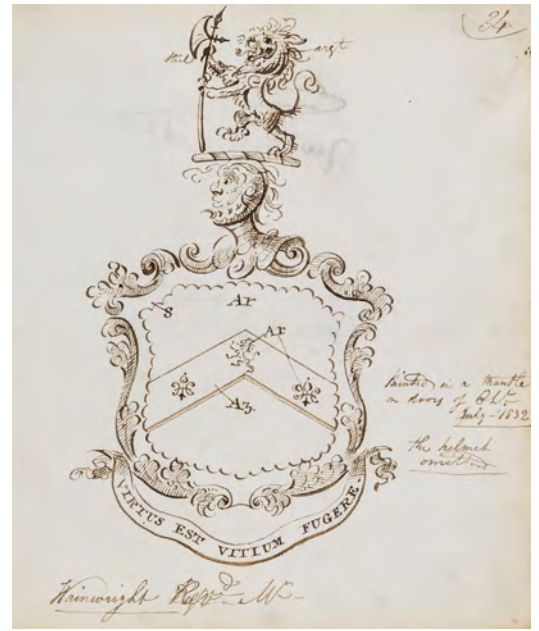 34
argt
Ar
S
Ar
Az.
Painted in a mantle
on doors of
July - 1832
the helmet
omitted
VIRTUS EST VITIUM FUGERE.
Wainwright Revd. Mr